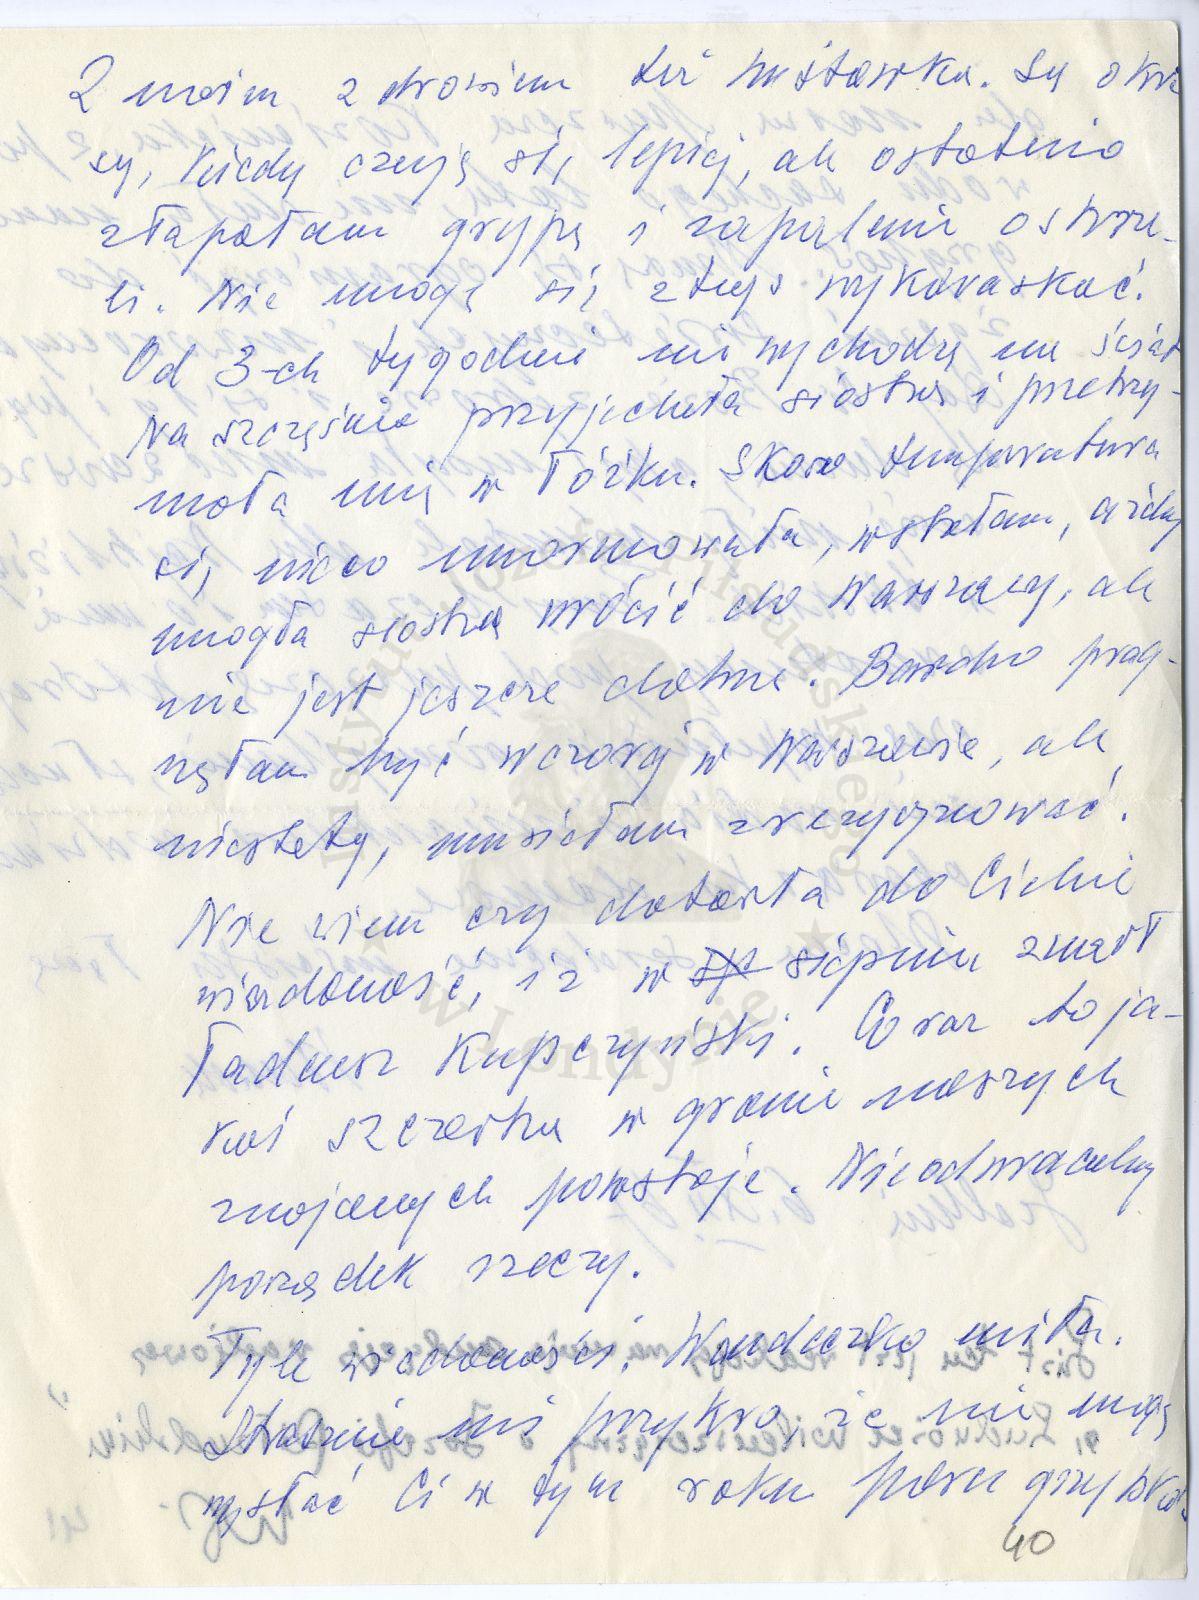 Z moim zdrowiem też huśtawka. Są okre
sy, kiedy czuję się lepiej, ale ostatnio
złapałam grypę i zapalenie oskrze-
li. Nie mogę się z tego wykaraskać.
Od 3-ch tygodni nie wychodzę na świat
Na szczęście przyjechała siostra i przetrzy-
mała mię w łóżku. Skoro temperatura
się nieco unormowała, wstałam, ażeby
mogła siostra wrócić do Warszawy, ale
nie jest jeszcze dobrze. Bardzo prag-
nęłam być wczoraj w Warszawie, ale,
niestety, musiałam zrezygnować.
Nie wiem czy dotarła do Ciebie
wiadomość, iż w sierpniu zmarł
Tadeusz Kupczyński. Coraz to ja-
kaś szczerba w gronie naszych
znajomych powstaje. Nieodwracalny
porządek rzeczy.
Tyle wiadomości, Wandeczko miła.
Strasznie mi przykro, że nie mogę
wysłać Ci w tym roku paru grzybków
40
Instytut Józefa Piłsudskiego
w Londynie